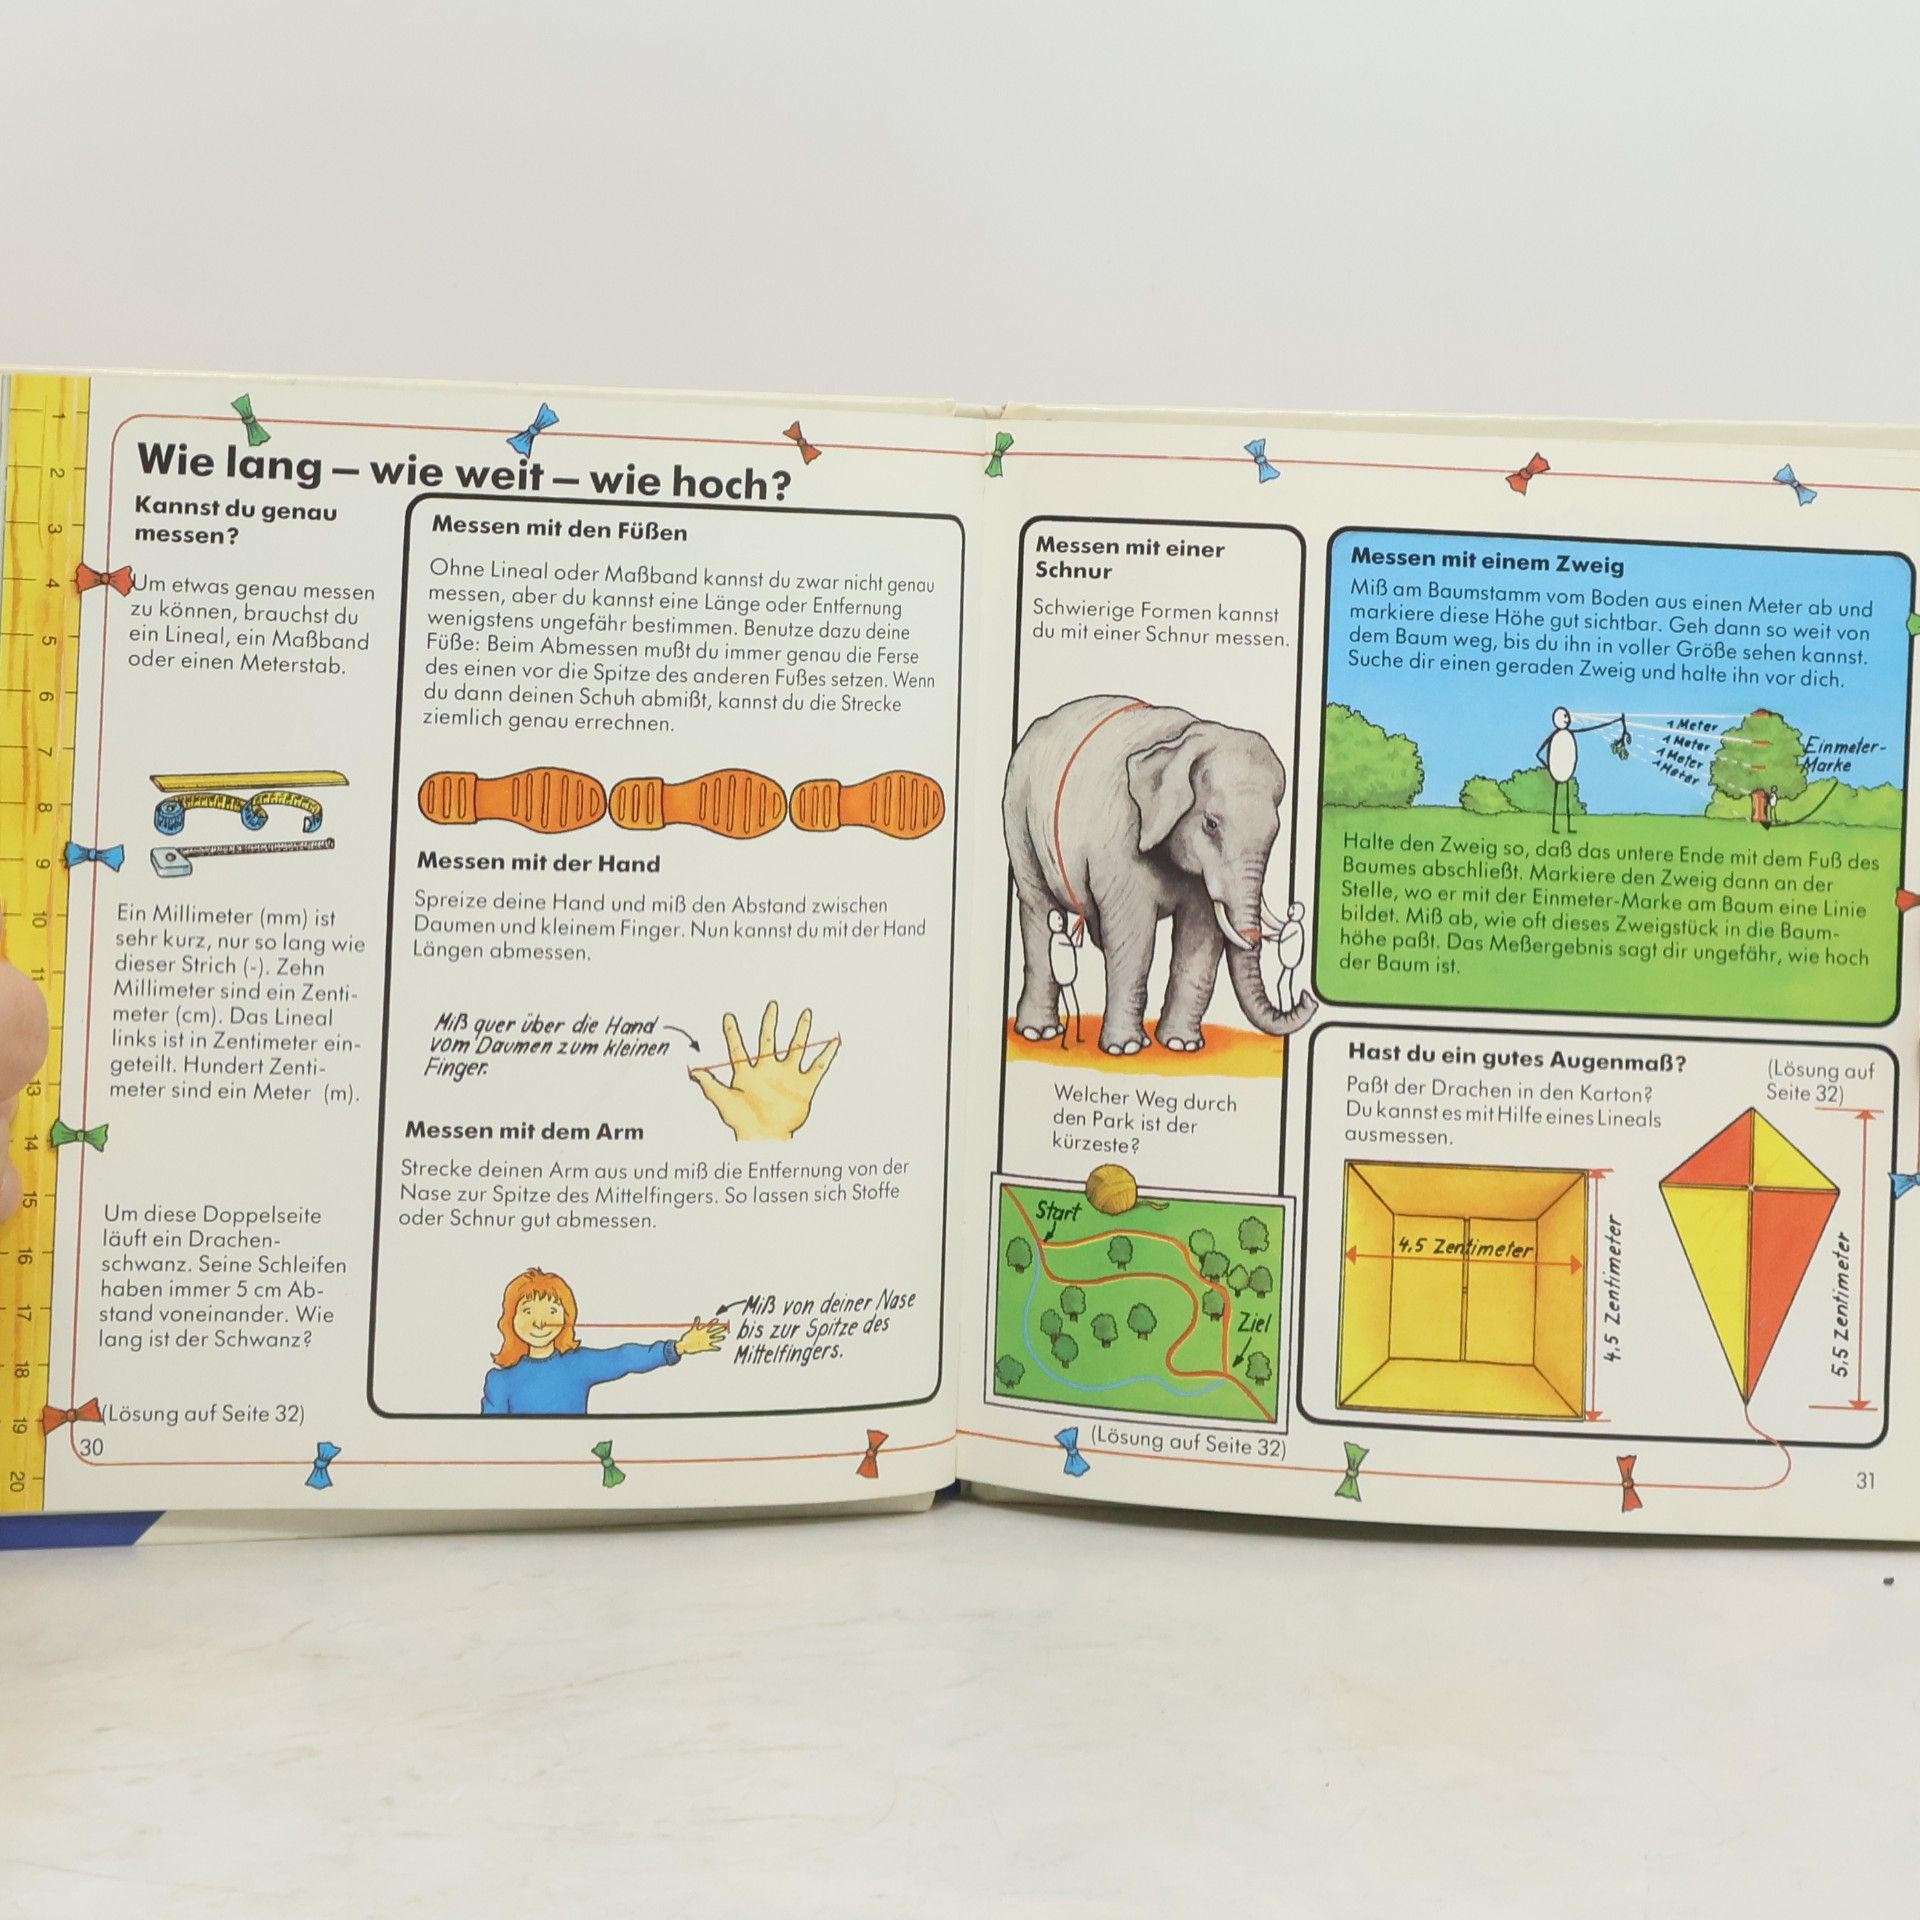 1
2
3
4
5
6
7
8
9
10
11
13
14
15
16
17
18
19
20
Wie lang – wie weit – wie hoch?
Kannst du genau
messen?
Um etwas genau messen
zu können, brauchst du
ein Lineal, ein Maßband
oder einen Meterstab.
Ein Millimeter (mm) ist
sehr kurz, nur so lang wie
dieser Strich (-). Zehn
Millimeter sind ein Zenti-
meter (cm). Das Lineal
links ist in Zentimeter ein-
geteilt. Hundert Zenti-
meter sind ein Meter (m).
Um diese Doppelseite
läuft ein Drachen-
schwanz. Seine Schleifen
haben immer 5 cm Ab-
stand voneinander. Wie
lang ist der Schwanz?
(Lösung auf Seite 32)
30
Messen mit den Füßen
Ohne Lineal oder Maßband kannst du zwar nicht genau
messen, aber du kannst eine Länge oder Entfernung
wenigstens ungefähr bestimmen. Benutze dazu deine
Füße: Beim Abmessen mußt du immer genau die Ferse
des einen vor die Spitze des anderen Fußes setzen. Wenn
du dann deinen Schuh abmißt, kannst du die Strecke
ziemlich genau errechnen.
Messen mit der Hand
Spreize deine Hand und miß den Abstand zwischen
Daumen und kleinem Finger. Nun kannst du mit der Hand
Längen abmessen.
Miß quer über die Hand
vom Daumen zum kleinen
Finger.
Messen mit dem Arm
Strecke deinen Arm aus und miß die Entfernung von der
Nase zur Spitze des Mittelfingers. So lassen sich Stoffe
oder Schnur gut abmessen.
Miß von deiner Nase
bis zur Spitze des
Mittelfingers.
Messen mit einer
Schnur
Schwierige Formen kannst
du mit einer Schnur messen.
Welcher Weg durch
den Park ist der
kürzeste?
Start
Ziel
(Lösung auf Seite 32)
Messen mit einem Zweig
Miß am Baumstamm vom Boden aus einen Meter ab und
markiere diese Höhe gut sichtbar. Geh dann so weit von
dem Baum weg, bis du ihn in voller Größe sehen kannst.
Suche dir einen geraden Zweig und halte ihn vor dich.
1 Meter
1 Meter
1 Meter
1 Meter
Einmeter-
Marke
Halte den Zweig so, daß das untere Ende mit dem Fuß des
Baumes abschließt. Markiere den Zweig dann an der
Stelle, wo er mit der Einmeter-Marke am Baum eine Linie
bildet. Miß ab, wie oft dieses Zweigstück in die Baum-
höhe paßt. Das Meßergebnis sagt dir ungefähr, wie hoch
der Baum ist.
Hast du ein gutes Augenmaß?
(Lösung auf
Seite 32)
Paßt der Drachen in den Karton?
Du kannst es mit Hilfe eines Lineals
ausmessen.
4,5 Zentimeter
4,5 Zentimeter
5,5 Zentimeter
31